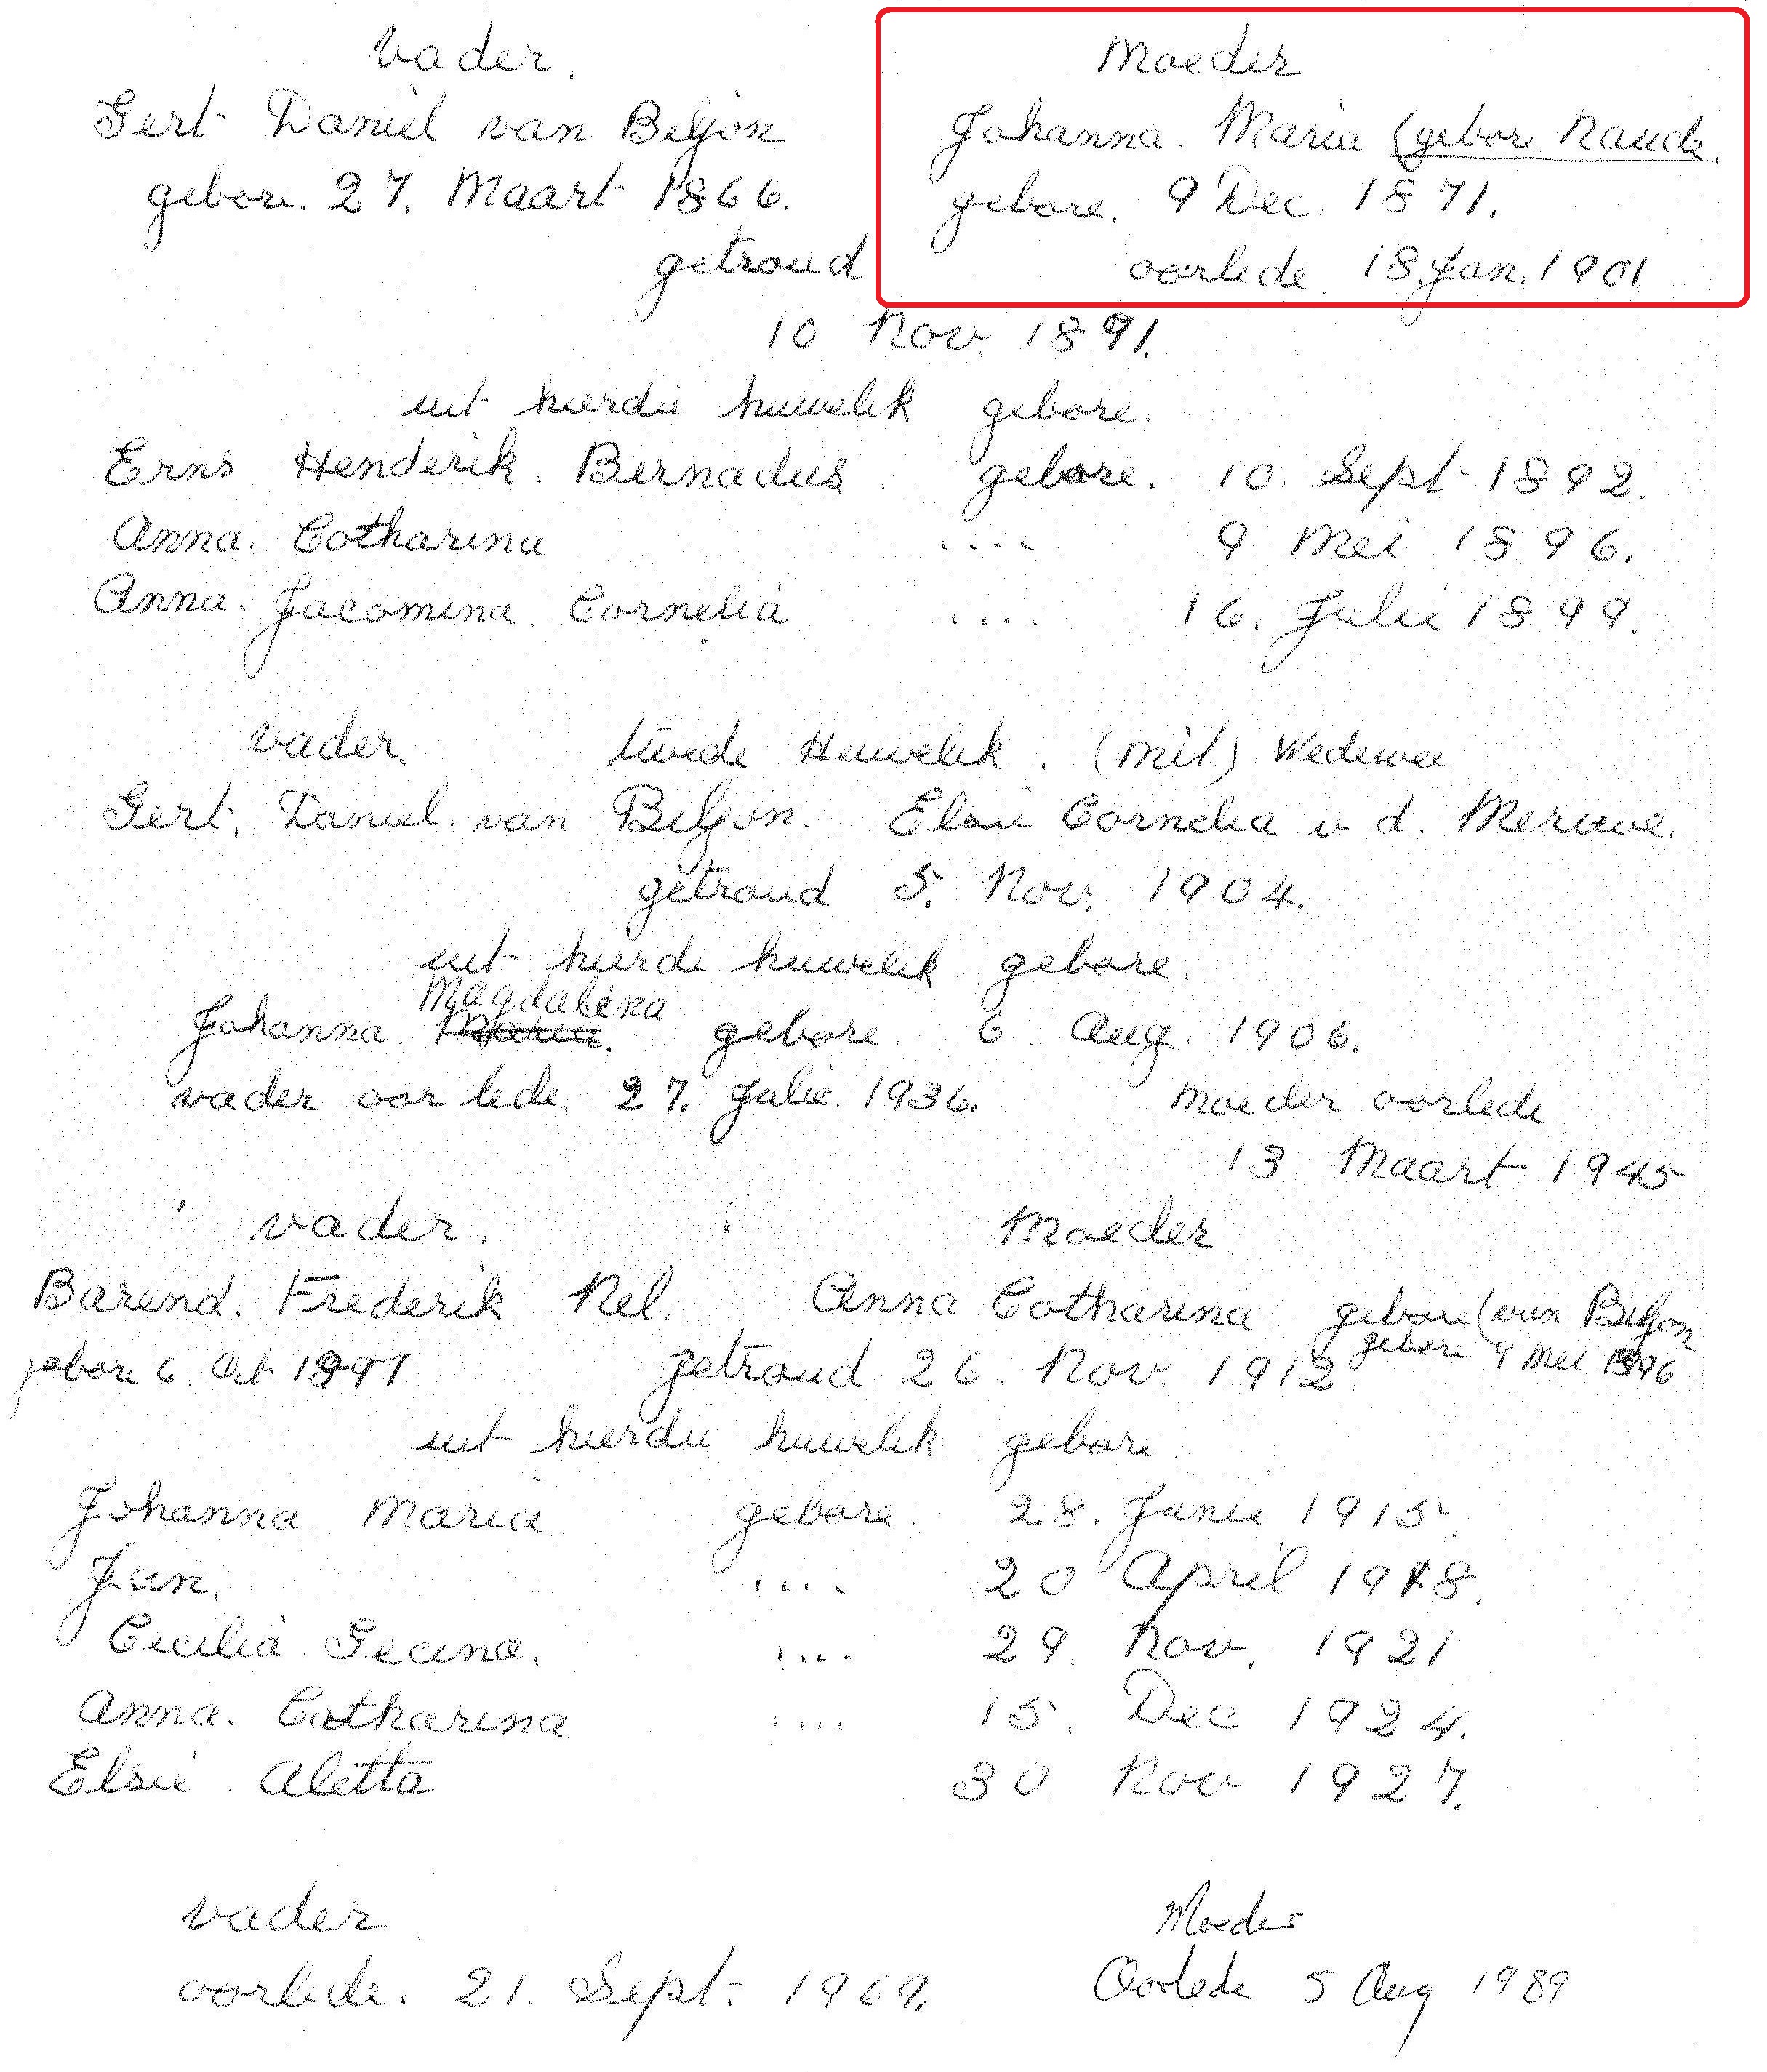 Vader. Moeder
Gert Daniel van Beljon Johanna. Maria (gebore Naude.
gebore. 27. Maart 1866. gebore. 9 Dec. 1871.
getroud oorlede. 18. Jan. 1901
10 Nov. 1891.
uit hierdie huwelik gebore.
Erns Henderik. Bernadus gebore. 10. Sept 1892.
Anna. Catharina .... 9 Mei 1896.
Anna. Jacomina. Cornelia .... 16. Julie 1899.
vader. twede Huwelik. (mit) Wedewee
Gert. Daniel. van Biljon. Elsie Cornelia v d. Merwwe.
getroud 5. Nov. 1904.
uit hierde huwelik gebore.
Magdalena
Johanna. Maria. gebore. 6 Aug. 1906.
vader oor lede. 27. Julie. 1936. moeder oorlede
13 Maart 1945
vader. Moeder
Barend. Frederik Nel. Anna Catharina gebore (van Biljon
gebore 6. Oct 1891 getroud 26. Nov. 1912. gebore 9 Mei 1896
uit hierdie huwelik gebore
Johanna Maria gebore. 28. Junie 1915.
Jan. .... 20 April 1918.
Cecilia. Gecina. .... 29. Nov. 1921
Anna. Catharina .... 15. Dec 1924.
Elsie. Aletta 30 Nov 1927.
vader Moeder
oorlede. 21. Sept. 1969. Oorlede 5 Aug 1989